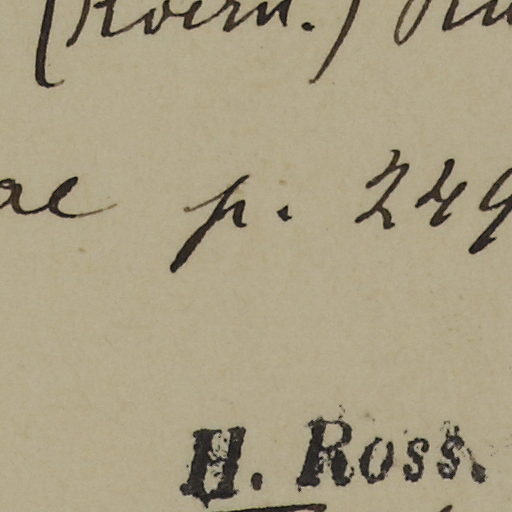 (Koern.)
ae p. 249
H. Ross.